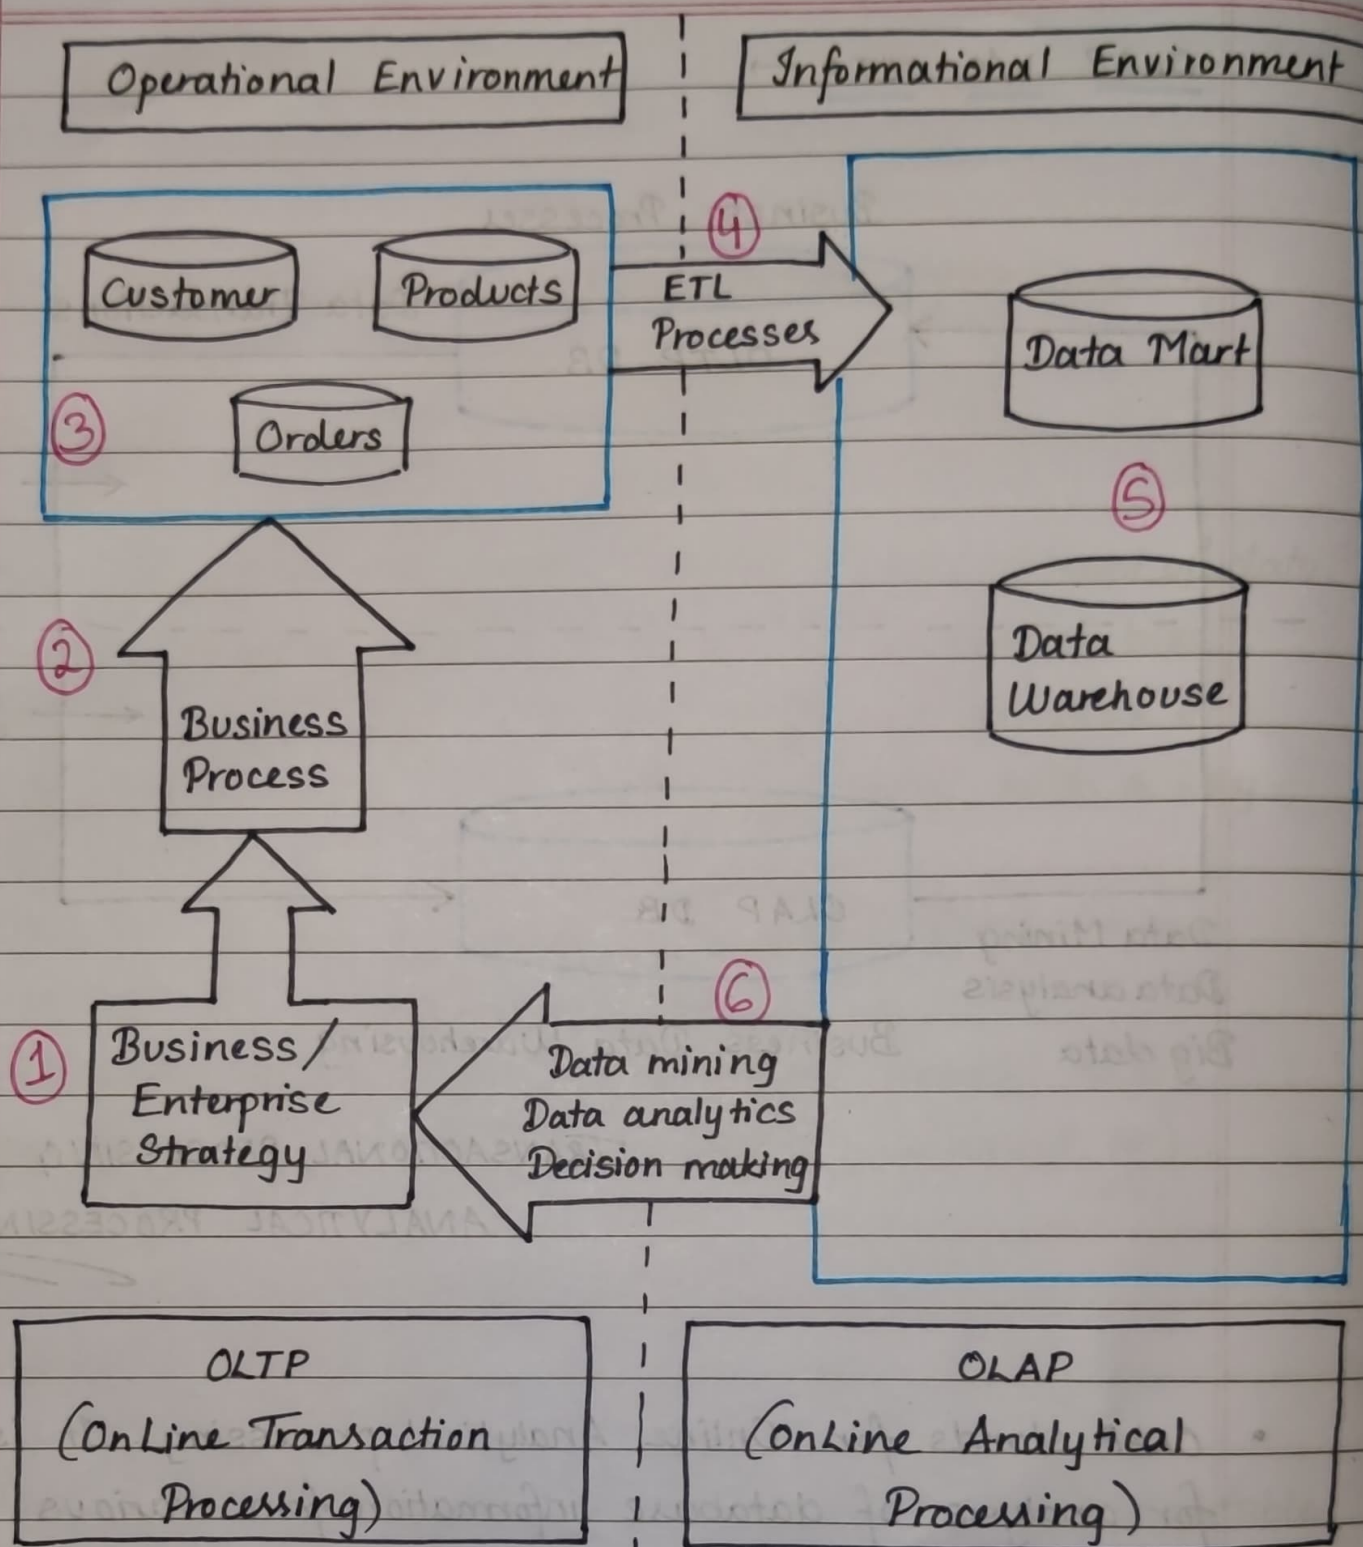 Operational Environment
Informational Environment
Customer
Products
4
ETL
Processes
Data Mart
3
Orders
5
2
Business
Process
Data
Warehouse
6
1
Business/
Enterprise
Strategy
Data mining
Data analytics
Decision making
OLTP
(OnLine Transaction
Processing)
OLAP
(OnLine Analytical
Processing)